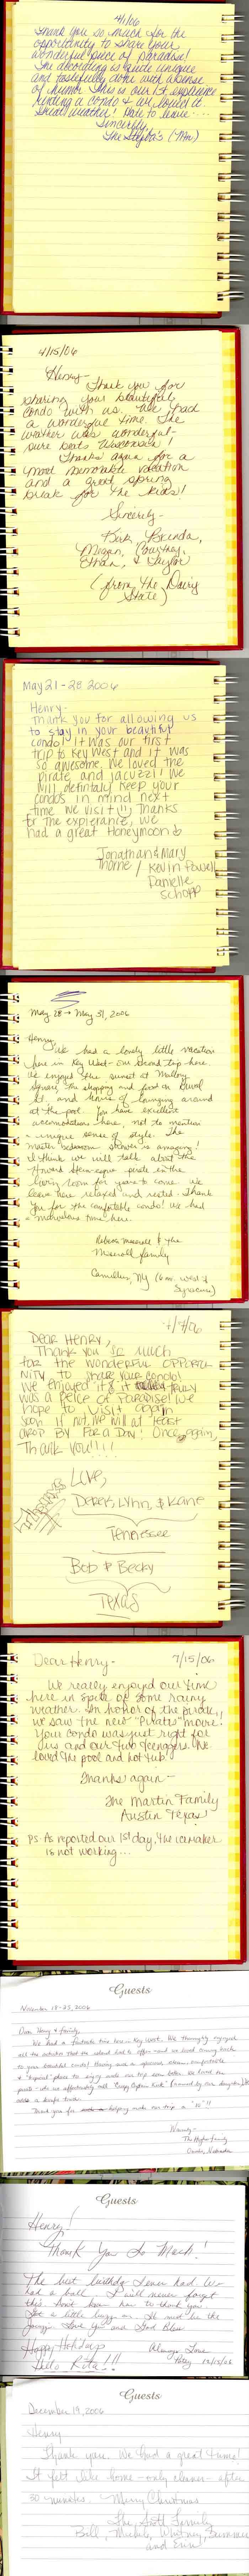 4/1/06
Thank you so much for the
opportunity to share your
wonderful piece of paradise!
The decorating is quite unique
and tastefully done with a sense
of humor. This is our 1st experience
renting a condo & we loved it.
Great weather! Hate to leave....
Sincerely,
The (MN)
4/15/06
Henry-
Thank you for
sharing your beautiful
condo with us. We had
a wonderful time. The
weather was wonderful-
sure beats Wisconsin!
Thanks again for a
most memorable vacation
and a great spring
break for the kids!
Sincerely-
Kirk, Brenda,
Megan, Courtney,
Ethan, & Taylor
(from the Dairy
State)
May 21-28 2006
Henry-
Thank you for allowing us
to stay in your beautiful
condo! It was our first
trip to Key West and it was
so awesome. We loved the
pirate and jacuzzi! We
will definitaly keep your
condos in mind next
time we visit!! Thanks
for the experiance, we
had a great Honeymoon
Jonathan & Mary
Thorne / Kevin Powell
Danielle
Schopp
May 28 → May 31, 2006
Henry,
We had a lovely little vacation
here in Key West - our second trip here.
We enjoyed the sunset at Mallory
Square, the shopping and food on Duval
St. and hours of lounging around
at the pool. You have excellent
accomodations here, not to mention
a unique sense of style. The
master bedroom shower is amazing!
I think we will talk about the
pirate in the
living room for years to come. We
leave here relaxed and rested. Thank
you for the comfortable condo! We had
a marvelous time here.
Rebecca & the
family
Camillus, NY (6 mi. west of
Syracuse)
7/7/06
Dear Henry,
Thank you so much
for the wonderful opportu
nity to share your condo!
We enjoyed it & it truly
was a peice of paradise! We
hope to visit again
soon if not, we will at least
drop by for a day! Once again,
Thank you!!!!
Love,
Derek, Lynn, & Kane
Tennessee
Bob & Becky
Texas
Dear Henry- 7/15/06
We really enjoyed our time
here in spite of some rainy
weather. In honor of the pirate,
we saw the new "Pirates" movie!
Your condo was just right for
us and our two teenagers. We
loved the pool and hot tub!
Thanks again-
The Martin Family
Austin Texas
PS. As reported our 1st day, the icemaker
is not working...
Guests
November 18-25, 2006
Dear Henry & family,
We had a fantastic time here in Key West. We thoroughly enjoyed
all the activities that the island had to offer and we loved coming back
to your beautiful condo! Having such a spacious, comfortable
& "tropical" place to enjoy made our trip even better. We loved the
pirate - as we affectionately call "Crazy Captain Kirk" (named by our daughter).
Thank you for helping make our trip a "10"!!
Warmly-
The Family
Omaha, Nebraska
Guests
Henry!
Thank You So Much!
The best birthday I ever had. We
had a ball. I will never forget
this. Don't know how to thank you.
Got a little buzz on. See you in the
Love you and God Bless
Happy Holidays Always Love
Hello Rita!!! Patsy 12/13/06
Guests
December 19, 2006
Henry
Thank you. We had a great time!
It felt like home - only cleaner - after
30 minutes. Merry Christmas
The Family
Bill, Michele, Whitney, Summer
and Erin